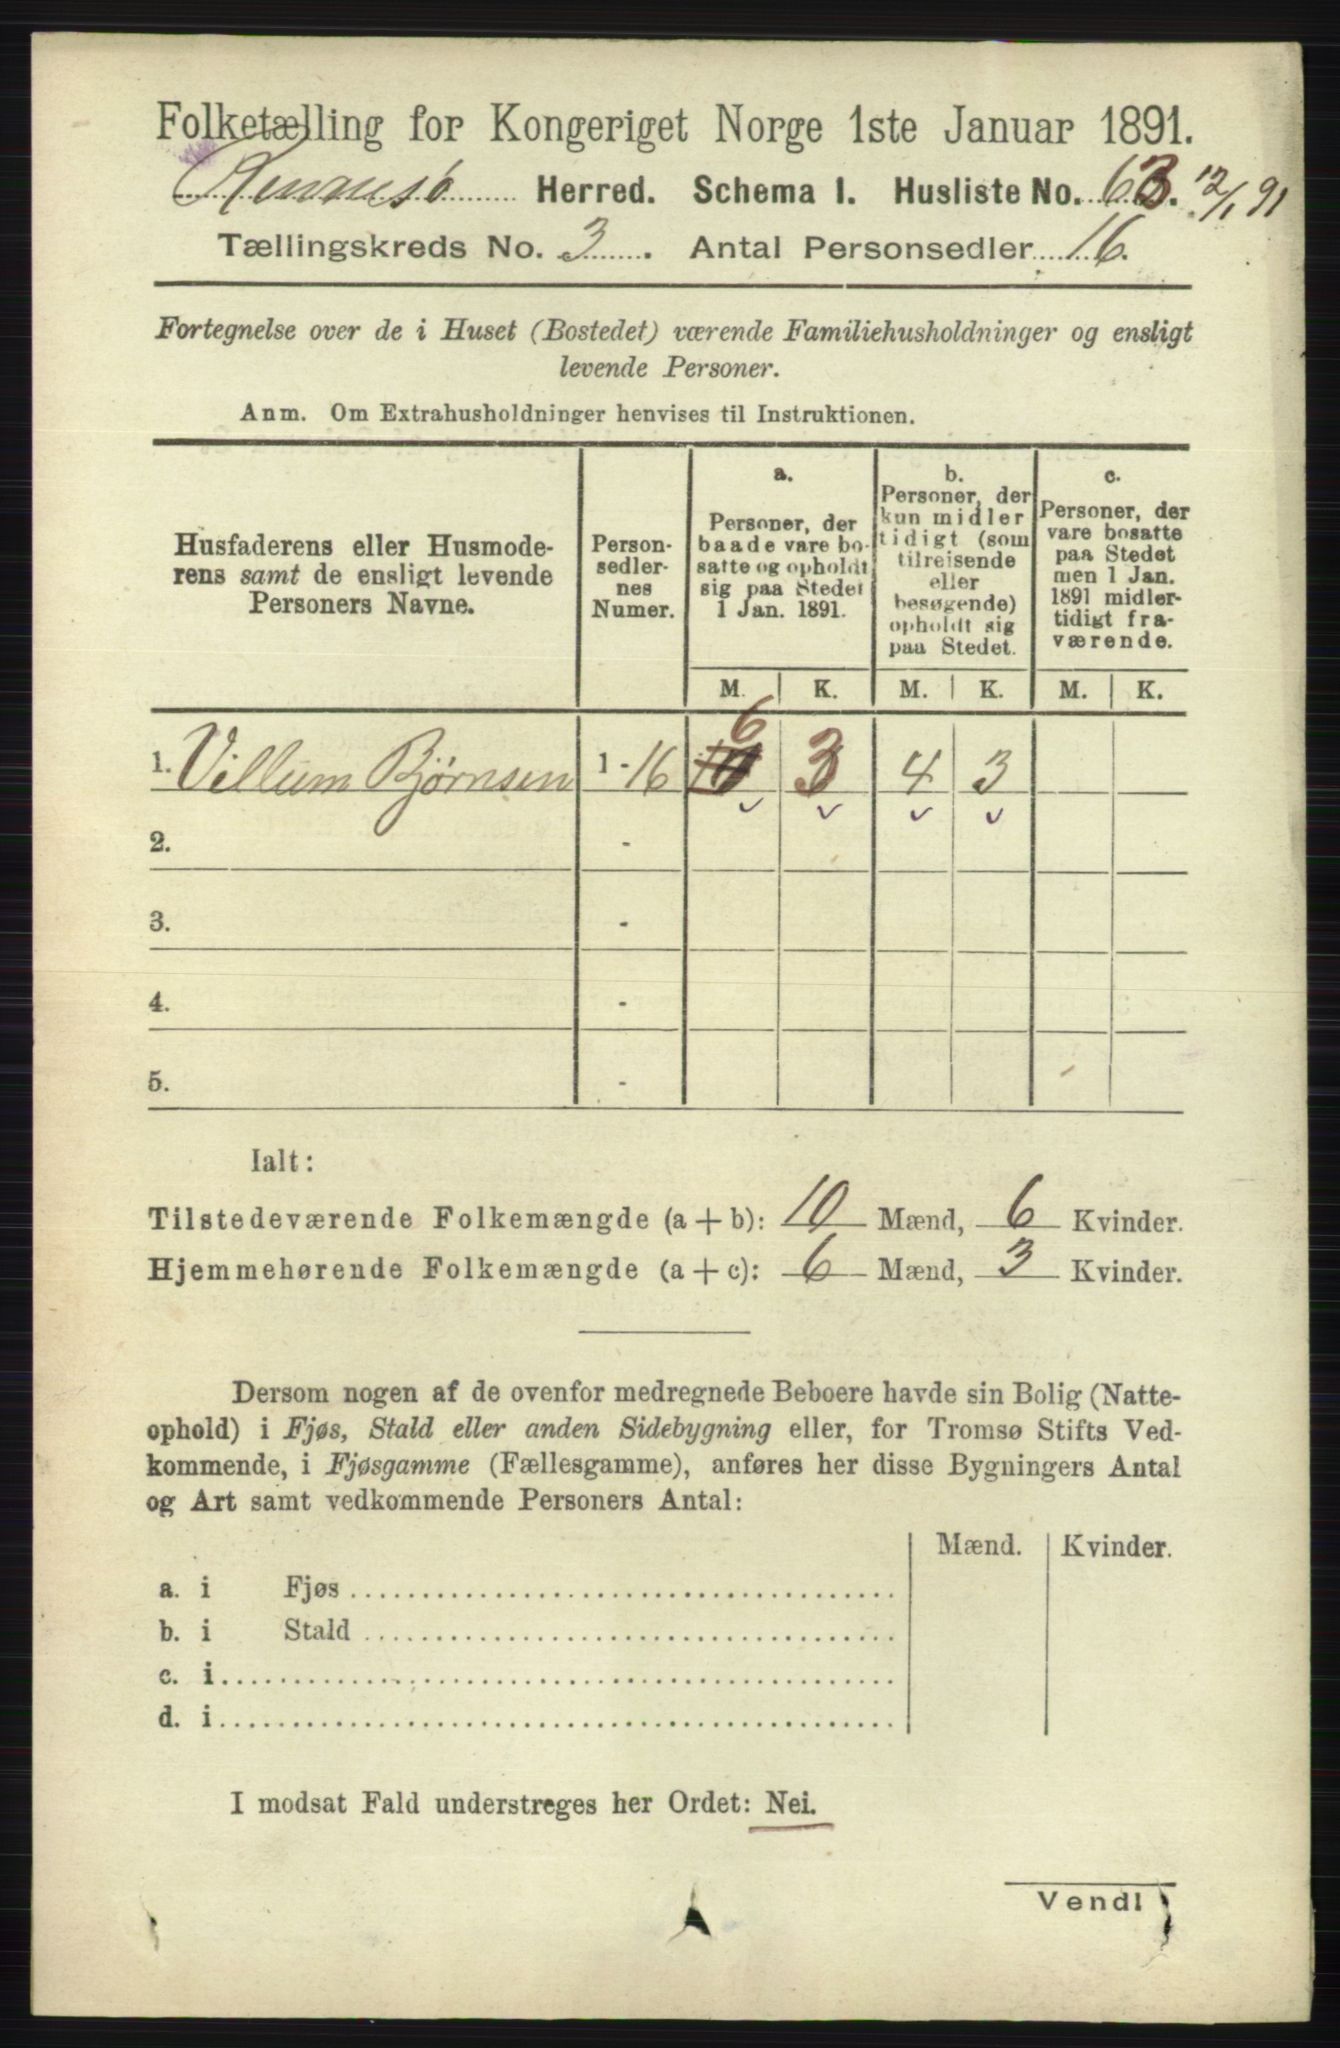 Folketælling for Kongeriget Norge 1ste Januar 1891.
Herred. Schema I. Husliste No. 63. 12/1 91
Tællingskreds No. 3. Antal Personsedler 16.
Fortegnelse over de i Huset (Bostedet) værende Familiehusholdninger og ensligt
levende Personer.
Anm. Om Extrahusholdninger henvises til Instruktionen.
Husfaderens eller Husmode-
rens samt de ensligt levende
Personers Navne.
Person-
sedler-
nes
Numer.
a.
Personer, der
baade vare bo-
satte og opholdt
sig paa Stedet
1 Jan. 1891.
b.
Personer, der
kun midler
tidigt (som
tilreisende
eller
besøgende)
opholdt sig
paa Stedet.
c.
Personer, der
vare bosatte
paa Stedet
men 1 Jan.
1891 midler-
tidigt fra-
værende.
M. K. M. K. M. K.
6
1. Villum Bjørnsen 1 - 16 10 3 4 3
2. -
3. -
4. -
5. -
Ialt:
Tilstedeværende Folkemængde (a + b): 10 Mænd, 6 Kvinder.
Hjemmehørende Folkemængde (a + c): 6 Mænd, 3 Kvinder.
Dersom nogen af de ovenfor medregnede Beboere havde sin Bolig (Natte-
ophold) i Fjøs, Stald eller anden Sidebygning eller, for Tromsø Stifts Ved-
kommende, i Fjøsgamme (Fællesgamme), anføres her disse Bygningers Antal
og Art samt vedkommende Personers Antal:
Mænd. Kvinder.
a. i Fjøs
b. i Stald
c. i
d. i
I modsat Fald understreges her Ordet: Nei.
Vend!